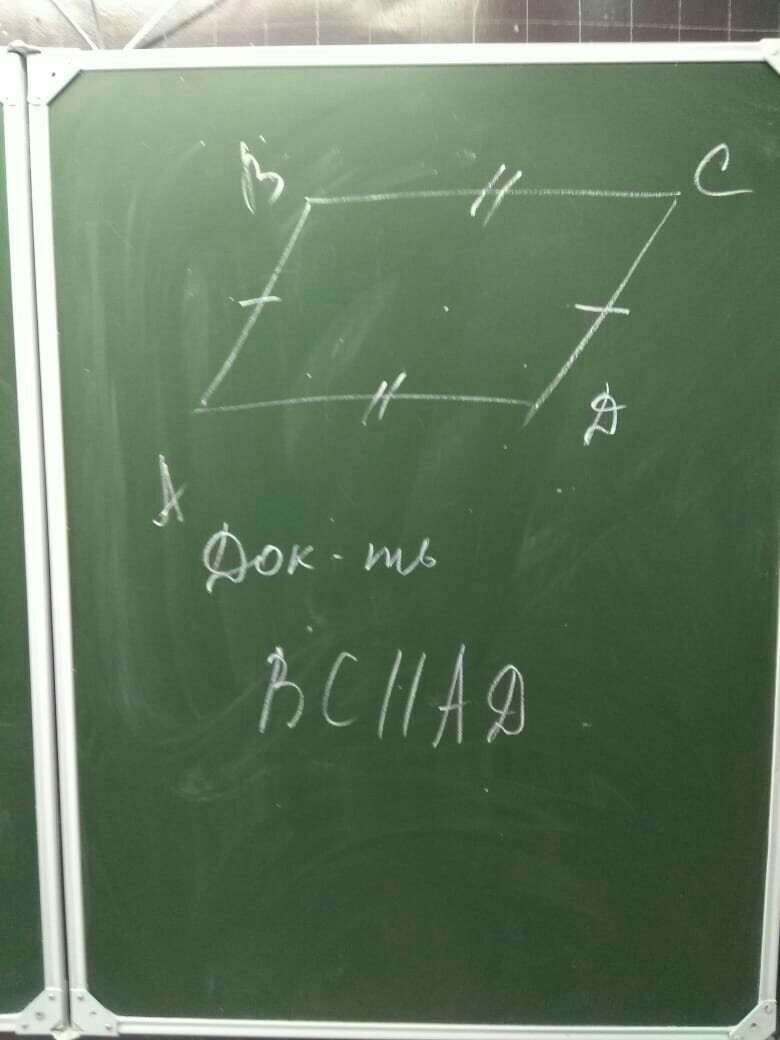 B C
A Д
Док-ть
BC||AД